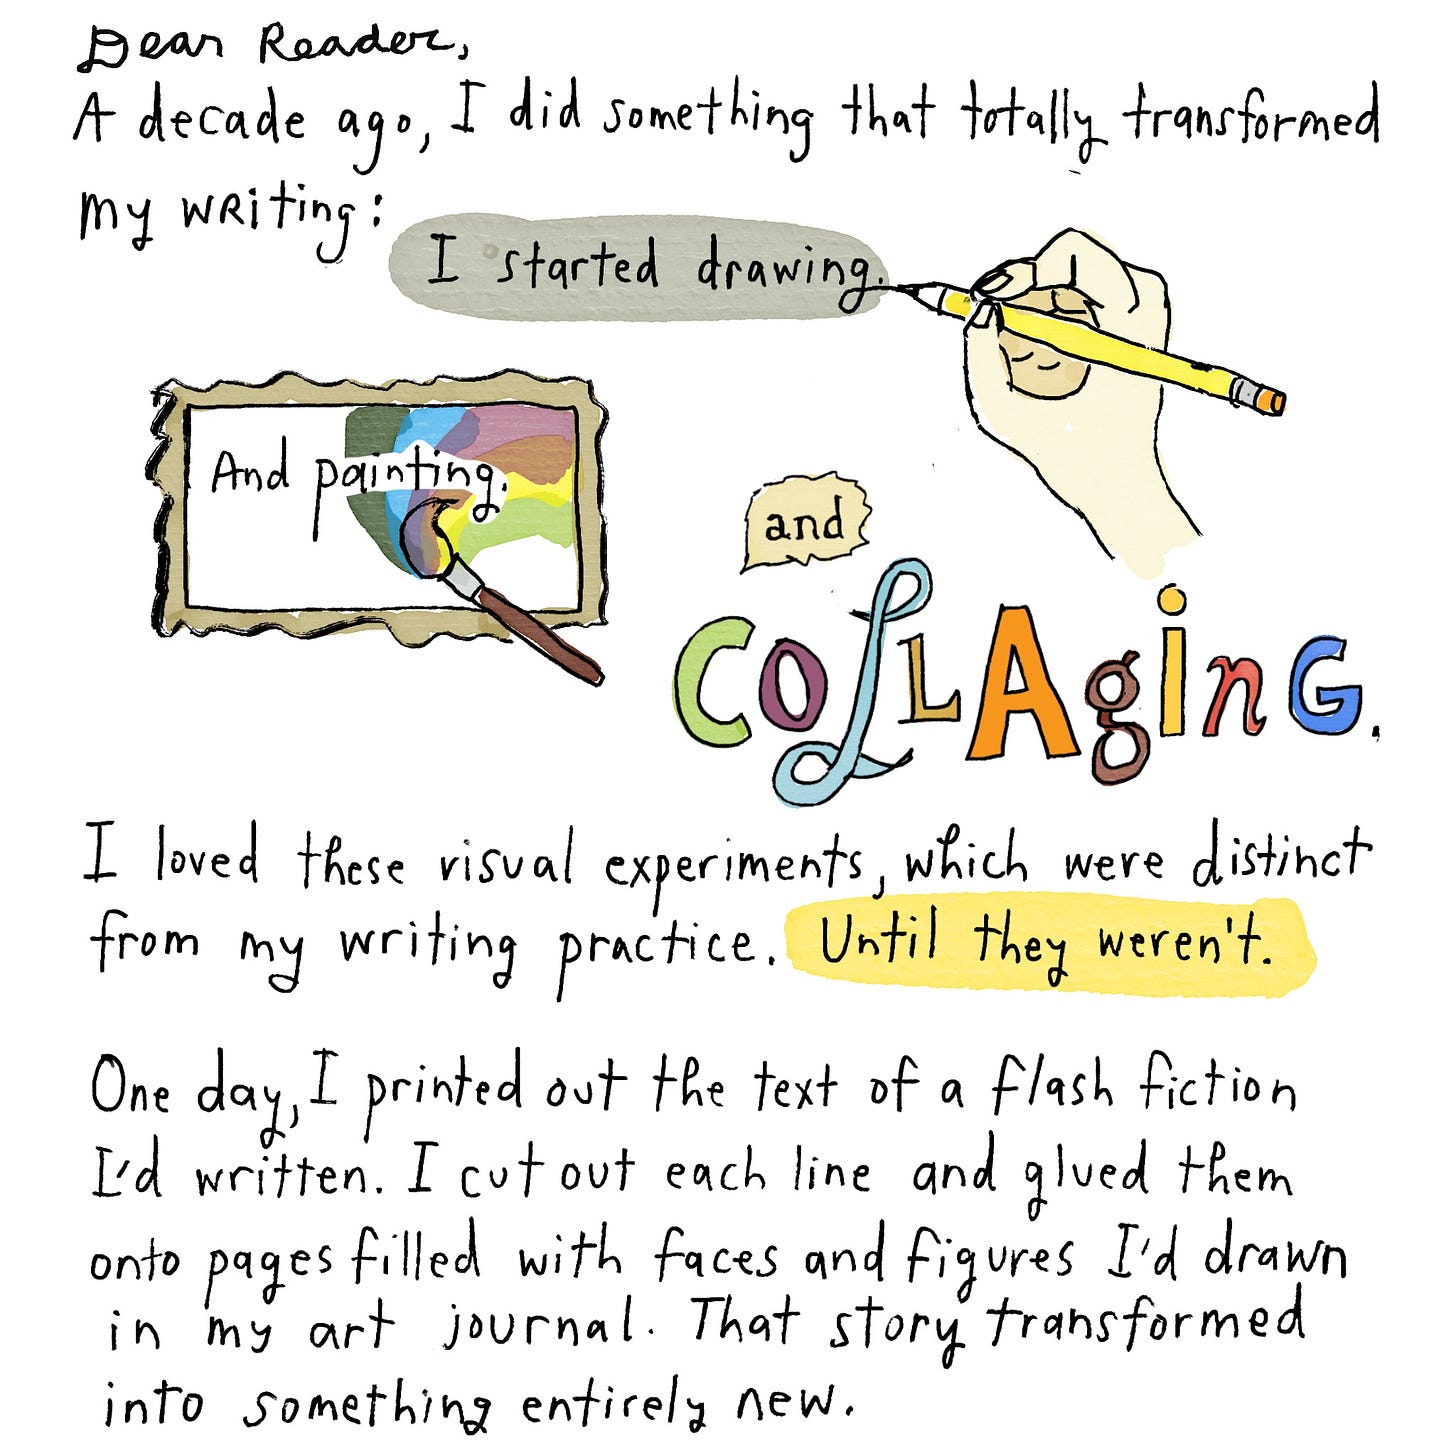 Dear Reader,
A decade ago, I did something that totally transformed
my writing:
I started drawing.
And painting.
and
COLLAgiNG.
I loved these visual experiments, which were distinct
from my writing practice. Until they weren't.
One day, I printed out the text of a flash fiction
I'd written. I cut out each line and glued them
onto pages filled with faces and figures I'd drawn
in my art journal. That story transformed
into something entirely new.